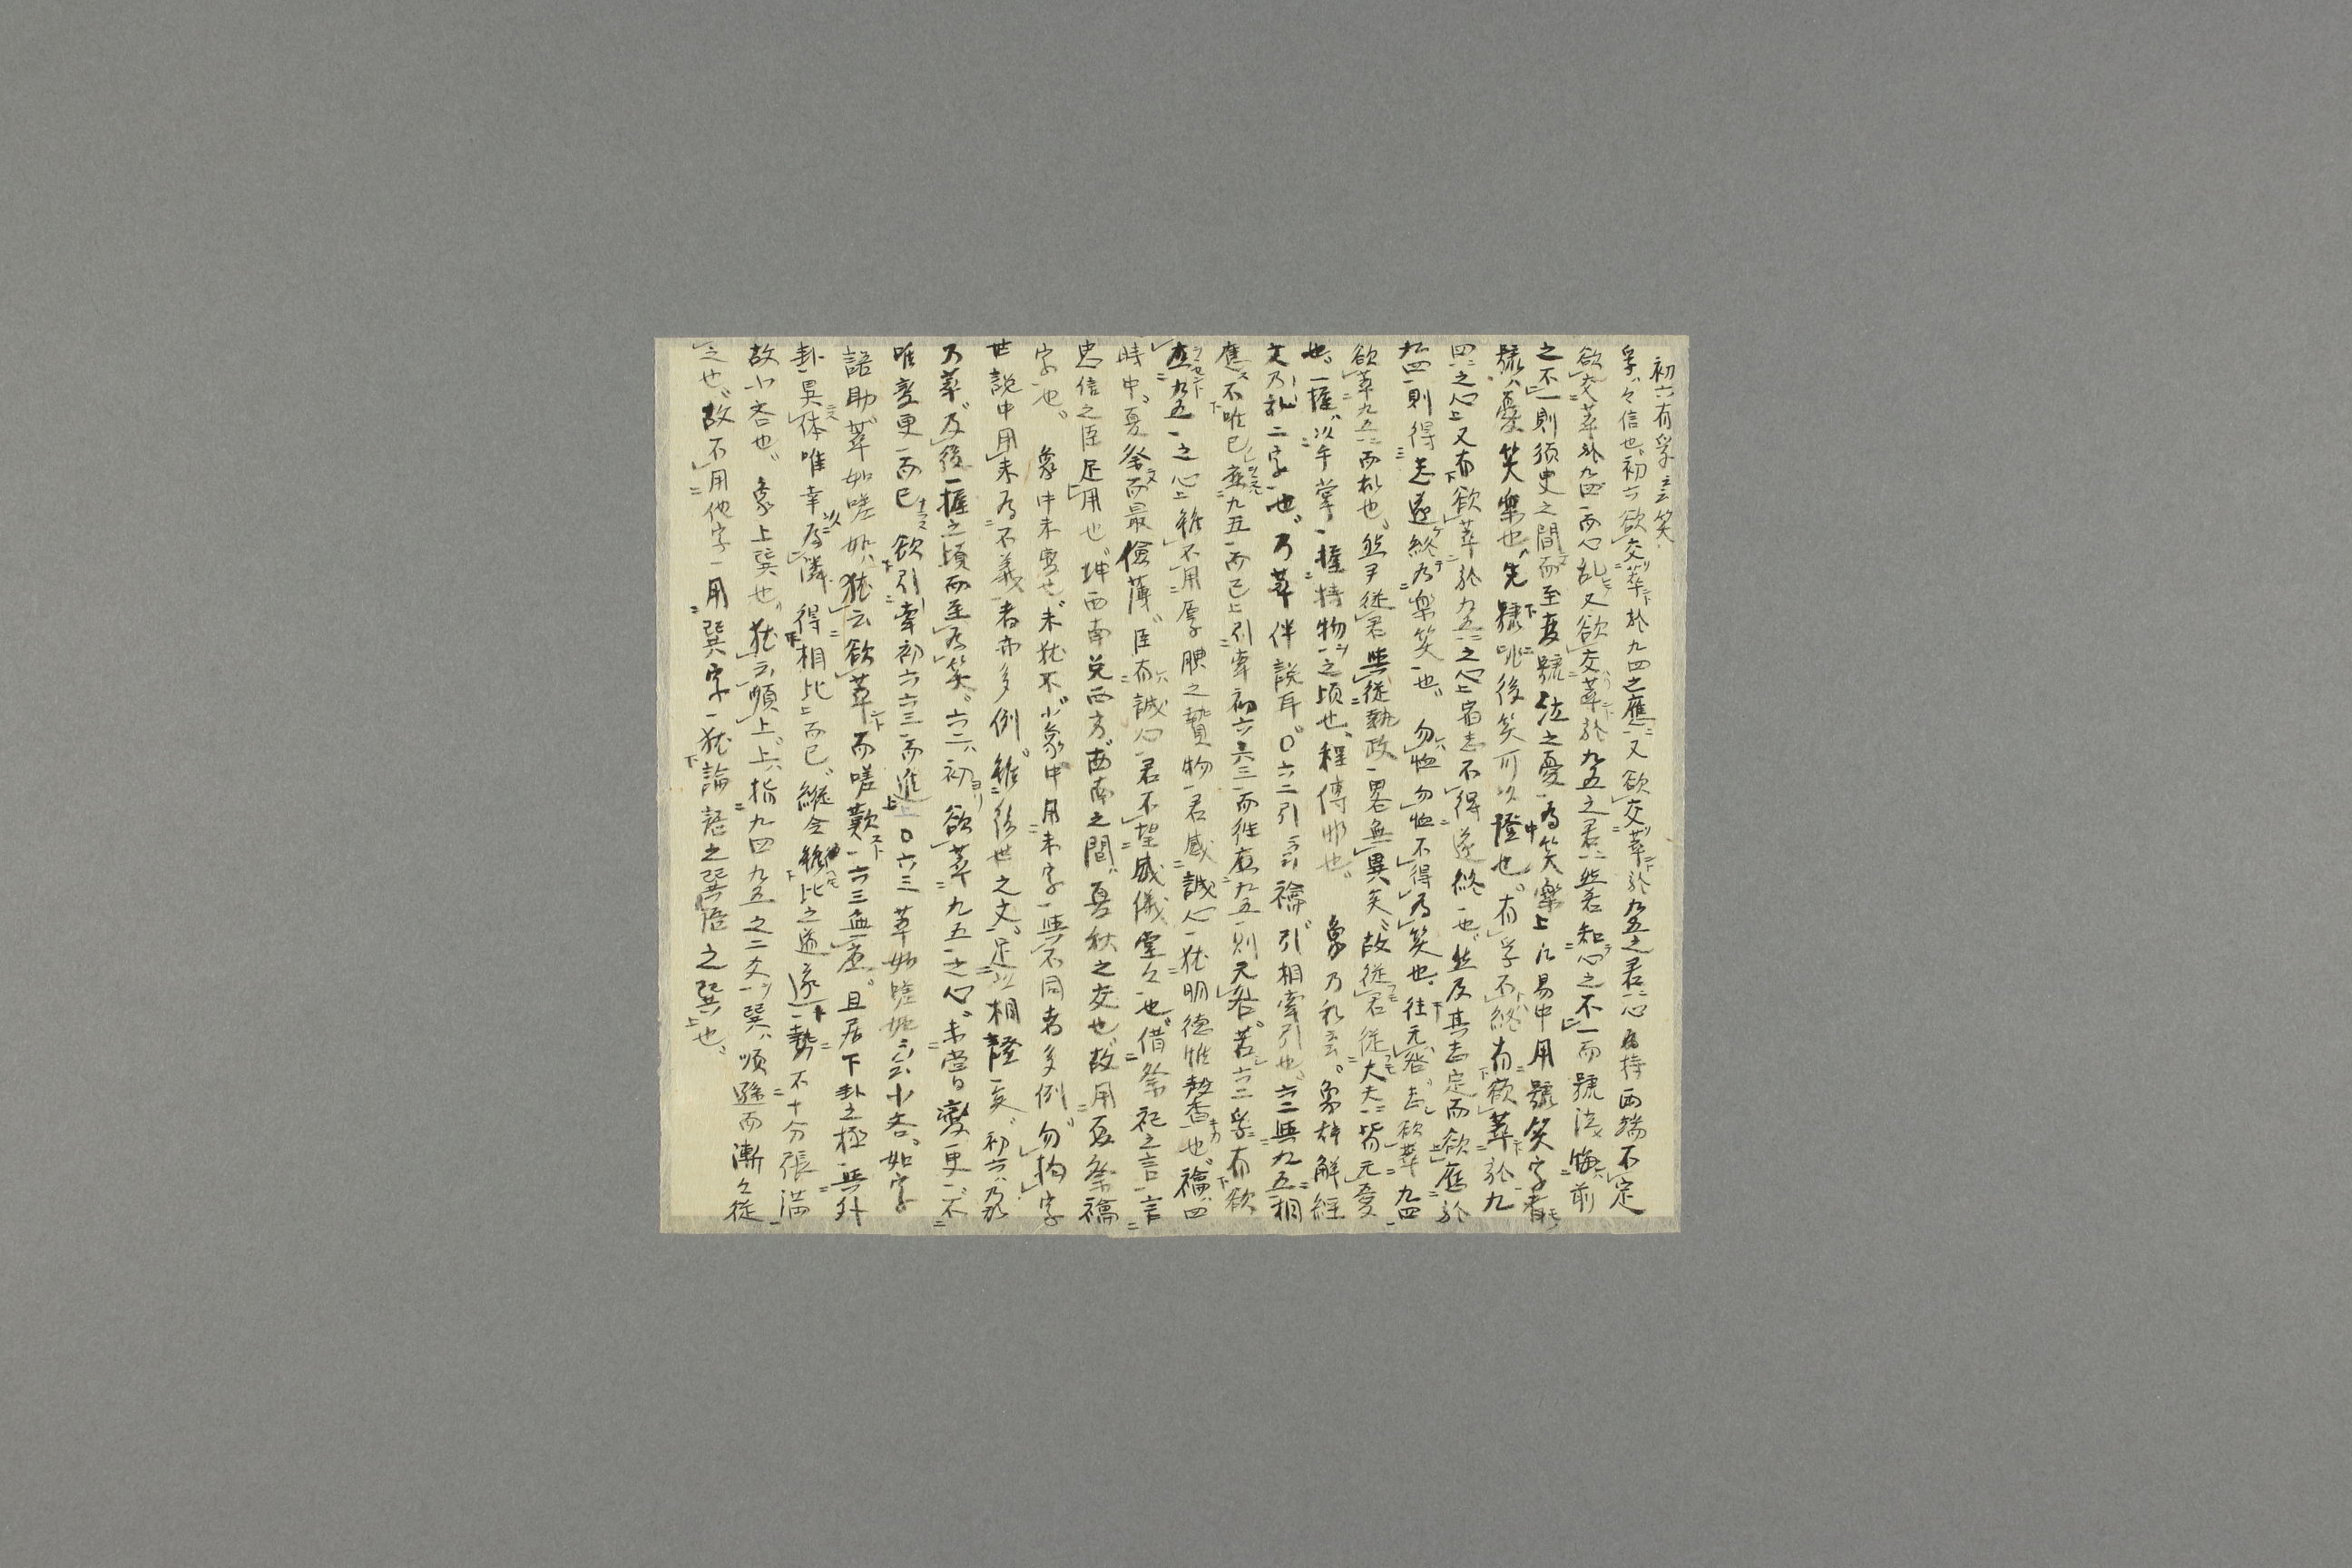 初六有孚云云笑
孚、々信也、初六欲交萃於九四之應又欲交萃於九五之君心持両端不定
欲交萃於九四而心乱又欲交萃於九五之君然若知心之不一而號泣悔前
之不一則須臾之間而至変號泣之憂為笑樂上凡易中用號笑字者
號、憂笑樂也、先號咷後笑可以證也。有孚不終有欲萃於九
四之心上又有欲萃於九五之心上宿志不得遂終也、然及其志定而欲應於
九四則得志遂終為樂笑也。勿恤勿恤不得為笑也、往无咎、志欲萃九四
欲萃九五而乱也、然乎従君與従執政畧無異矣、故従君従大夫皆无憂
也、一握、以手掌一握持物之頃也、程傳非也。象乃乱云云。象辞解經
文乃乱二字也、乃萃伴説耳。〇六二引云云禴引相牽引也、六二與九五相
應不唯已應九五而已上引牽初六六三而往應九五則无咎。若六二孚有欲
應九五之心上雖不用厚腆之贄物君感誠心猶明徳惟馨香也、禴、四
時中、夏祭而最儉薄、臣有誠心君不望威儀堂々也、借祭祀之言言
忠信之臣足用也、坤西南兌西方、西南之間、夏秋之交也、故用夏祭禴
字也。象中未変也、未猶不、小象中用未字與不同者多例、勿拘字
世説中用未為不義者亦多例、雖後世之文、足以相證矣、初六、乃乱
乃萃、及後一握之頃而至為笑。六二、初欲萃九五之心、未嘗變更、不
唯變更而已欲引牽初六六三而進上〇六三萃如嗟如云云小吝、如字
語助、萃如嗟如、猶云欲萃而嗟歎六三無應。且居下卦之極與外
卦異体唯幸為隣得相比而已、縦令雖比之遂一勢不十分張満
故小吝也、象上巽也、猶云順上、上、指九四九五之二爻、巽、順遜而漸々従
之也、故不用他字用巽字猶論語之巽語之巽上也、